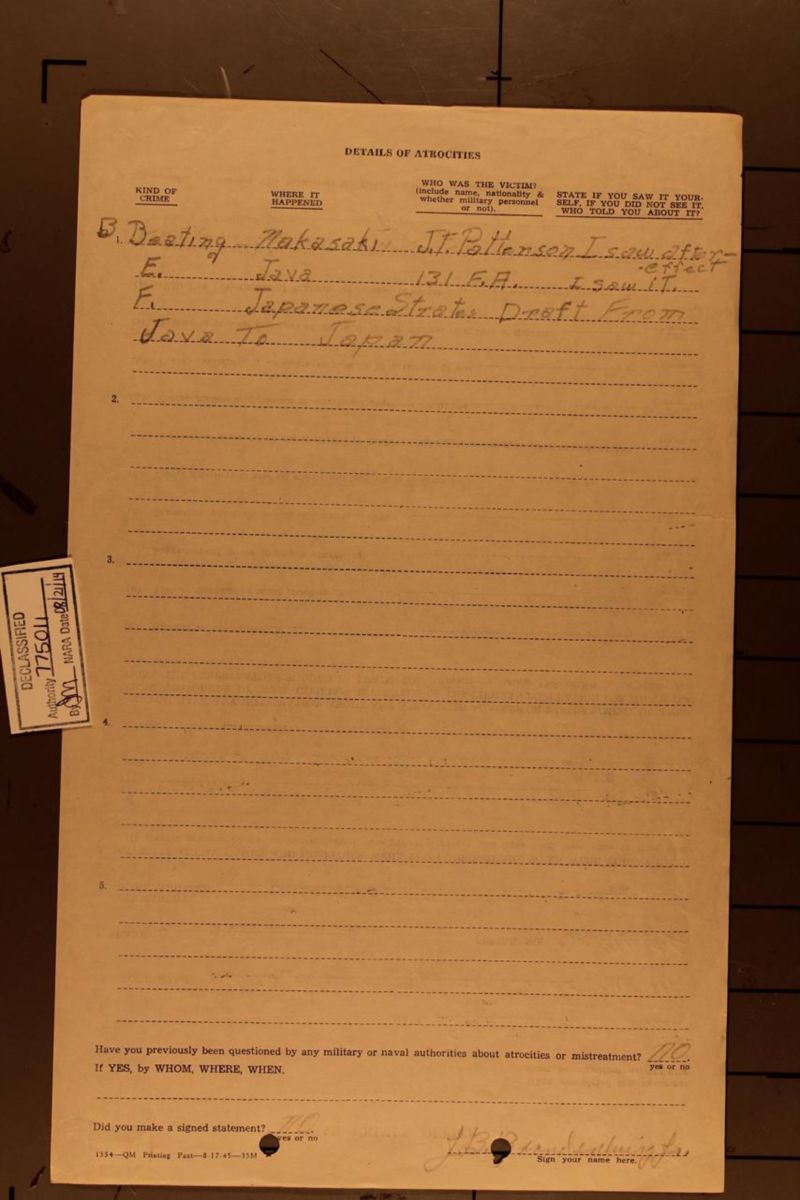 DETAILS OF ATROCITIES
KIND OF CRIME
WHERE IT HAPPENED
WHO WAS THE VICTIM? (include name, nationality & whether military personnel or not).
STATE IF YOU SAW IT YOURSELF. IF YOU DID NOT SEE IT, WHO TOLD YOU ABOUT IT?
B 1. Beating Nakasaki J.T. Pattenson I saw after-effect
E. Java 131 F.A. I saw IT.
F. Japanese Strate Draft From
Java To Japan
2.
3.
4.
5.
DECLASSIFIED
Authority 775011
By NARA Date 08/21/14
Have you previously been questioned by any military or naval authorities about atrocities or mistreatment? NO.
yes or no
If YES, by WHOM, WHERE, WHEN.
Did you make a signed statement?
yes or no
1354—QM Printing Plant—8-17-45—35M
Sign your name here.